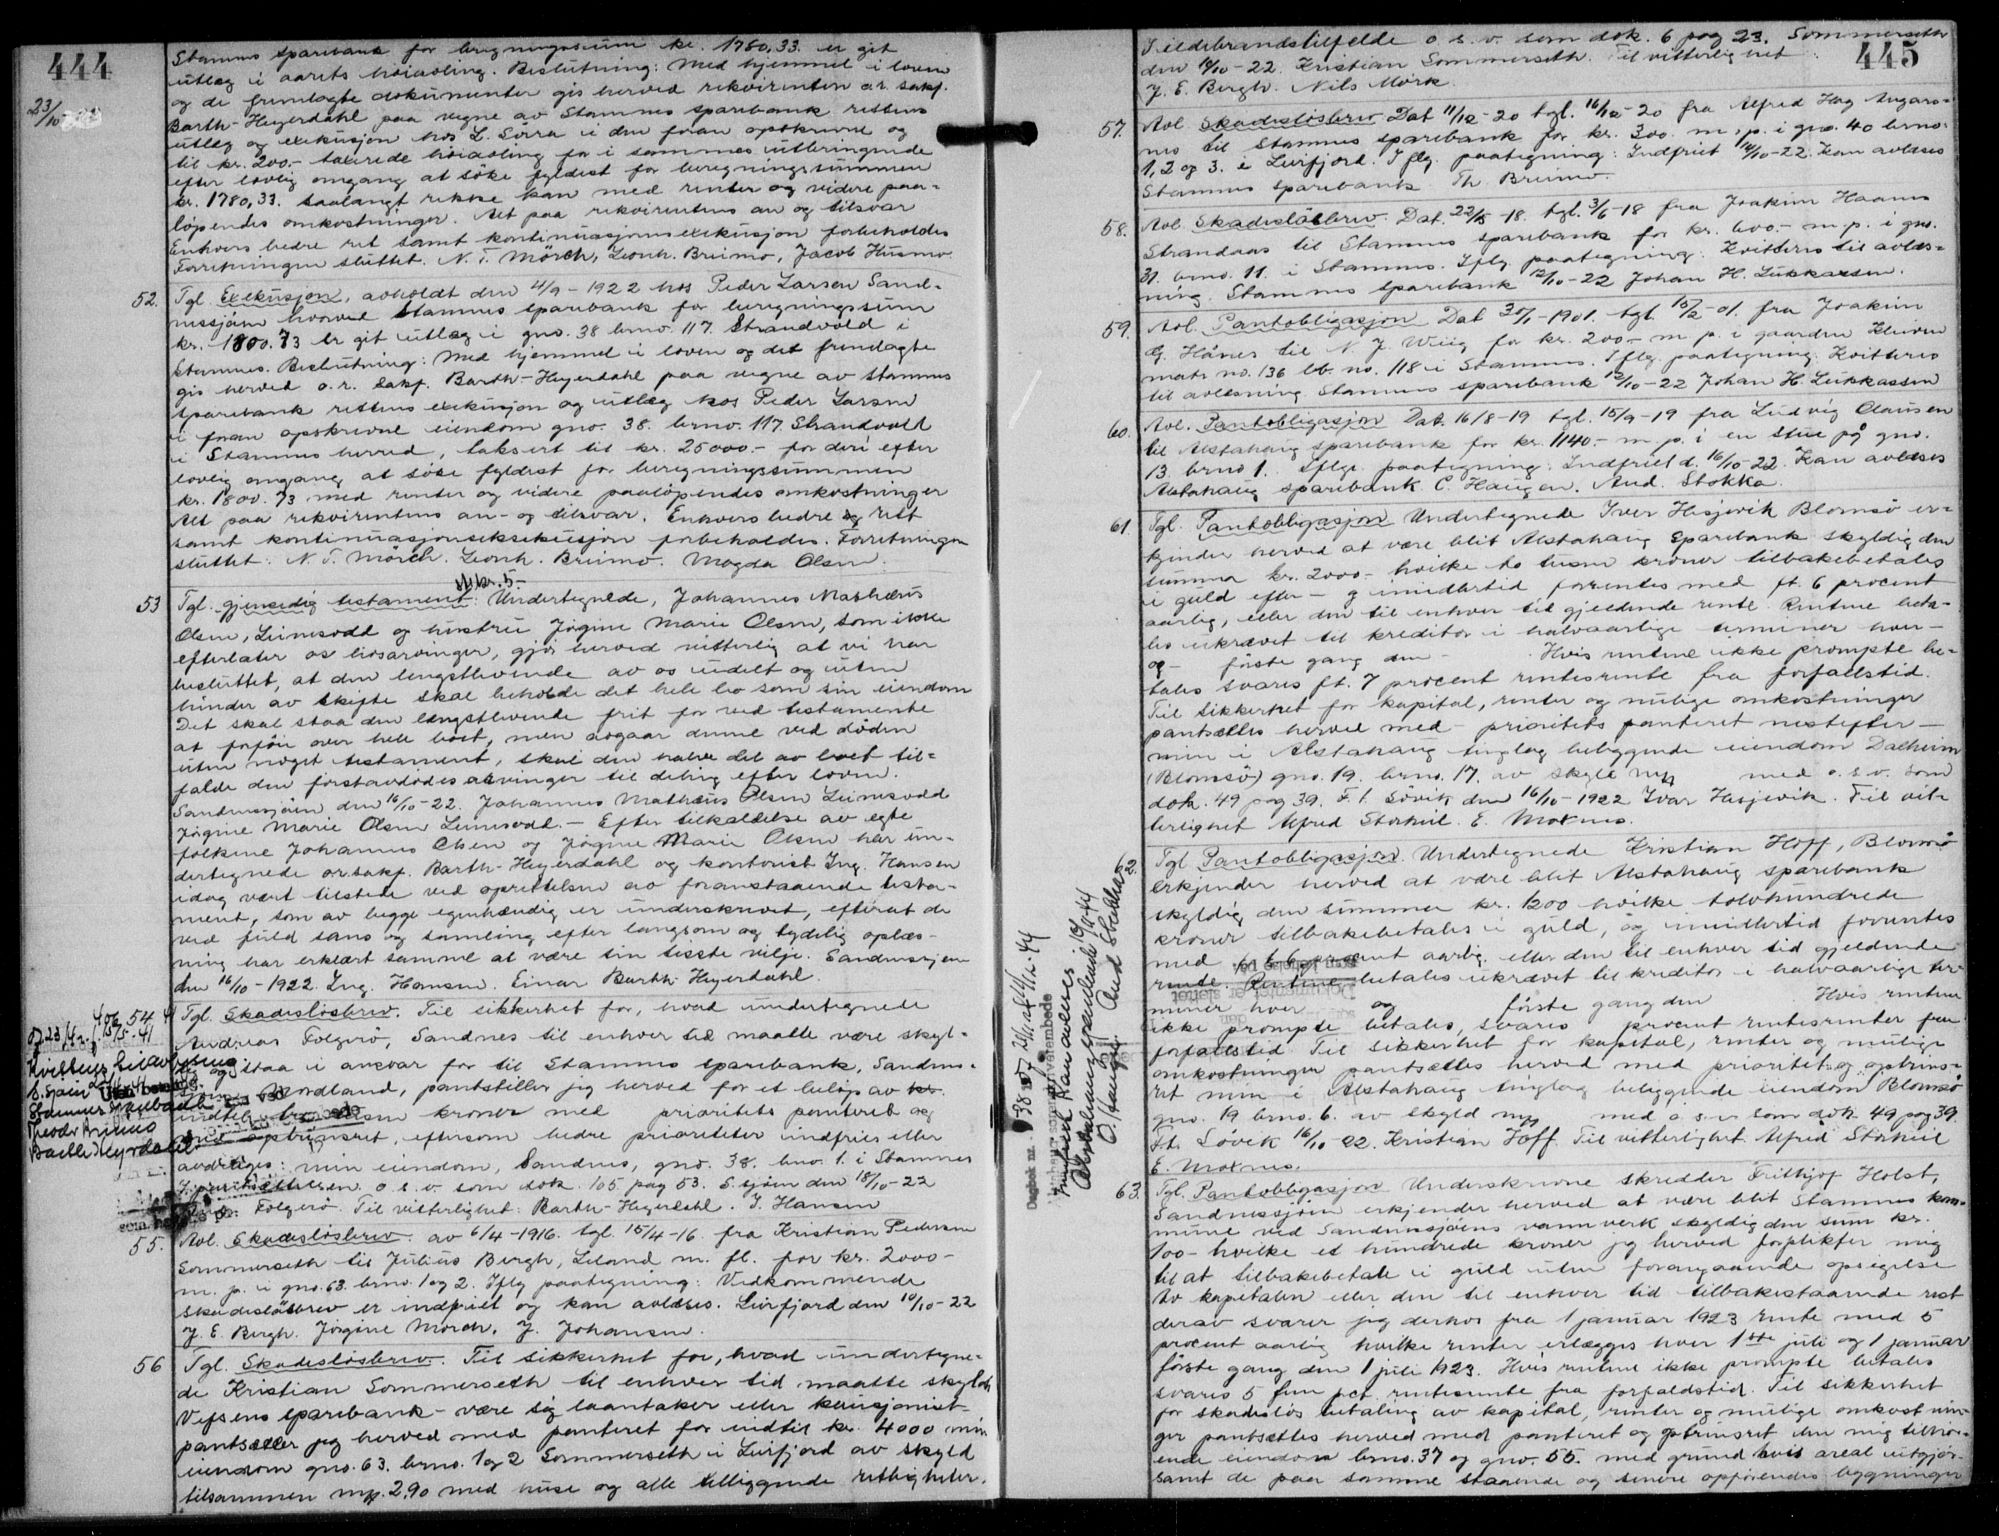 444
23/10-22
Stamnes sparebank for beregningssum kr. 1780,33. er git
utlæg i aarets høiavling. Beslutning: Med hjemmel i loven
og de fremlagte dokumenter gis herved rekvirenten o.r. sakf.
Barth-Heyerdahl paa vegne av Stamnes sparebank rettens
utlæg og exekusjon hos L. Sörra i den foran opskrevne og
til kr. 200.- takserte höiavling for i sammes utbringende
efter lovlig omgang at söke fyldest for beregningssummen
kr. 1780,33. saalangt rekke kan med renter og videre paa-
löpendes omkostninger. Alt paa rekvirentens an og tilsvar
Enhvers bedre ret samt kontinuasjonsexekusjon forbeholdes
Forretningen sluttet. N. T. Mörch, Leonh. Breimo, Jacob Husmo.
52. Tgl. Exekusjon, avholdt den 4/9-1922 hos Peder Larsen Sand-
nessjöen hvorved Stamnes sparebank for beregningssum
kr. 1800.73 er git utlæg i gno. 38 brno. 117. Strandvold i
Stamnes. Beslutning: Med hjemmel i loven og det fremlagte
gis herved o.r. sakf. Barth-Heyerdahl paa vegne av Stamnes
sparebank rettens exekusjon og utlæg hos Peder Larsen
i foran opskrevne eiendom gno. 38. brno. 117. Strandvold
i Stamnes herred, taksert til kr. 25000.- for deri efter
lovlig omgang at söke fyldest for beregningssummen
kr. 1800.73 med renter og videre paalöpendes omkostninger
Alt paa rekvirentens an- og tilsvar. Enhvers bedre og ret
samt kontinuasjonseksekusjon forbeholdes. Forretningen
sluttet: N. T. Mörch. Leonh. Breimo. Magda Olsen.
kr. 5-
53 Tgl. gjensidig testament: Undertegnede, Johannes Mathæus
Olsen, Leinesodd og hustru Jögine Marie Olsen, som ikke
efterlater os livsarvinger, gjör herved vitterlig at vi har
besluttet, at den lengstlevende av os uskift og uten
hinder av skifte skal beholde det hele bo som sin eiendom
Det skal staa den længstlevende frit for ved testamente
at forföie over hele boet, men avgaar denne ved döden
uten noget testament, skal den halve del av boet til-
falde den förstavdödes arvinger til deling efter loven.
Sandnessjöen den 16/10-22. Johannes Mathæus Olsen Leinesodd
Jögine Marie Olsen Leinesodd. - Efter tilkaldelse av egte
folkene Johannes Olsen og Jögine Marie Olsen har un-
dertegnede or.sakf. Barth-Heyerdahl og kontorist Ing. Hansen
idag vært tilstede ved oprettelsen av foranstaaende testa-
ment, som av begge egenhændig er underskrevet, efterat de
ved fuld sans og samling efter langsom og tydelig oplæs-
ning har erklært samme at være sin siste vilje. Sandnessjöen
den 16/10-1922. Ing. Hansen. Einar Barth-Heyerdahl.
54 Tgl. Skadeslösbrev. Til sikkerhet for, hvad undertegnede
Andreas Folgerö, Sandnes til enhver tid maatte være skyl-
dig og staa i ansvar for til Stamnes sparebank, Sandnes-
sjöen Nordland, pantstiller jeg herved for et belöp av kr.
indtil kroner med prioritets panteret og
med optrinsret, eftersom bedre prioriteter indfries eller
avdrages: min eiendom, Sandnes, gno. 38. brno. 1. i Stamnes
o.s.v. som dok. 105 pag 53. S.sjöen den 18/10-22
Folgerö. Til vitterlighet: Barth-Heyerdahl. I. Hansen
Stamnes sparebank
55. Avl. Skadeslösbrev. av 6/4-1916. tgl. 15/4-16. fra Kristian Pedersen
Sommerseth til Julius Bergh, Leland m. fl. for kr. 2000-
m. p. i gno. 63. brno. 1 og 2. Iflg paategning: Vedkommende
skadeslösbrev er indfriet og kan avlæses. Leirfjord den 10/10-22
J. E. Bergh. Jörgine Mörch. J. Johansen.
56 Tgl. Skadeslösbrev. Til sikkerhet for, hvad undertegne-
de Kristian Sommerseth til enhver tid maatte skylde
Vefsens sparebank- være sig laantaker eller kausjonist-
pantsætter jeg herved med panteret for indtil kr. 4000 min
eiendom gno. 63. brno. 1 og 2 Sommerseth i Leirfjord av skyld
tilsammen mrk 2.90 med huse og alle tilliggende rettigheter.
445
I ildebrandstilfelde o.s.v. som dok. 6 pag 23. Sommerseth
den 10/10-22. Kristian Sommerseth. Til vitterlighet:
J. E. Bergh. Nils Mörk.
57. Avl. Skadeslösbrev Dat 11/12-20 tgl. 16/12-20 fra Alfred Hag Angars-
nes til Stamnes sparebank for kr. 300. m. p. i gno. 40 brno.
1, 2 og 3. i Leirfjord. Iflg. paategning: Indfriet 14/10-22. Kan avlæses
Stamnes sparebank Th. Breimo.
58. Avl. Skadeslösbrev. Dat. 22/5-18. tgl. 3/6-18 fra Joakim Haanes
Strandaas til Stamnes sparebank for kr. 600.- m. p. i gno.
31. brno. 11. i Stamnes. Iflg. paategning: Kvitteres til avlæs-
ning. Stamnes sparebank 12/10-22 Johan H. Lukkassen.
59. Avl. Pantobligasjon Dat 30/1-1901. tgl. 15/2-01. fra Joakim
G. Hånes til N. J. Wiiig for kr. 200- m p. i gaarden Kleiven
matr. no. 136 lb. no. 118 i Stamnes. Iflg. paategning: Kvitteres
til avlæsning. Stamnes sparebank 12/10-22 Johan H. Lukkassen
60. Avl. Pantobligasjon Dat. 16/8-19 tgl. 15/9-19 fra Ludvig Clausen
til Alstahaug sparebank for kr. 1140.- m. p. i en stue på gno.
13. brno 1. Iflge. paategning: Indfriet d. 16/10-22. Kan avlæses
Alstahaug sparebank C. Haugen. And. Stokka.
61 Tgl. Pantobligasjon Undertegnede Iver Hesjevik Blomsö er-
kjender herved at være blit Alstahaug Sparebank skyldig den
summa kr. 2000- hvilke to tusen kroner tilbakebetales
i guld efter - g imidlertid forrentes med ft. 6 procent
aarlig, eller den til enhver tid gjeldende rente. Rentene beta-
les ukrævet til kreditor i halvaarlige terminer hver-
og - förste gang den - Hvis rentene ikke prompte be-
tales svares ft. 7 procent rentesrente fra forfallstid.
Til sikkerhet for kapital, renter og mulige omkostninger
pantsættes herved med- prioritets panteret nestefter-
min i Alstahaug tinglag beliggende eiendom Dalheim
(Blomsö) gno. 19. brno. 17. av skyld mrk med o.s.v. som
dok. 49 pag 39. F.t. Sövik den 16/10-1922 Ivar Hesjevik. Til vit-
terlighet Alfred Storkul. E. Moxnes.
62. Tgl. Pantobligasjon. Undertegnede Kristian Hoff, Blomsö
erkjender herved at være blit Alstahaug sparebank
skyldig den summer kr. 1200 hvilke tolvhundrede
kroner tilbakebetales i guld, og imidlertid forrentes
med ft 6 procent aarlig, eller den til enhver tid gjældende
rente. Rentene betales ukrævet til kreditor i halvaarlige ter-
miner hver og förste gang den Hvis rentene
ikke prompte betales, svares procent rentesrenter fra
forfallstid. Til sikkerhet for kapital, renter og mulige
omkostninger pantsættes herved med prioritet og optrins-
ret min i Alstahaug tinglag beliggende eiendom Blomsö
gno. 19 brno. 6. av skyld mrk med o.s.v. som dok. 49 pag 39.
f.t. Sövik 16/10-22. Kristian Hoff. Til vitterlighet. Alfred Storkul
E. Moxnes.
Dagbok nr.
Alstahaug sparebank
C. Haugen. And Stokka
63. Tgl. Pantobligasjon Underskrevne skredder Fridtjof Holst,
Sandnessjöen erkjender herved at være blit Stamnes kom-
mune ved Sandnessjöens vannverk skyldig den sum kr.
100- hvilke et hundrede kroner jeg herved forplikter mig
til at tilbakebetale i guld uten forangaaende opsigelse
Av kapitalen eller den til enhver tid tilbakestaaende rest
derav svarer jeg derhos fra 1 januar 1923 rente med 5
procent aarlig hvilke renter erlægges hver 1ste juli og 1 januar
förste gang den 1 juli 1923. Hvis rentene ikke prompte betales
svares 5 fem pct. rentesrente fra forfaldstid. Til sikkerhet
for skadeslös betaling av kapital, renter og mulige omkostnin-
ger pantsættes herved med panteret og optrinsret den mig tilhör-
ende eiendom brno. 37 og gno. 55. med grund hvis areal utgjör-
samt de paa samme staaende og senere opförendes bygninger